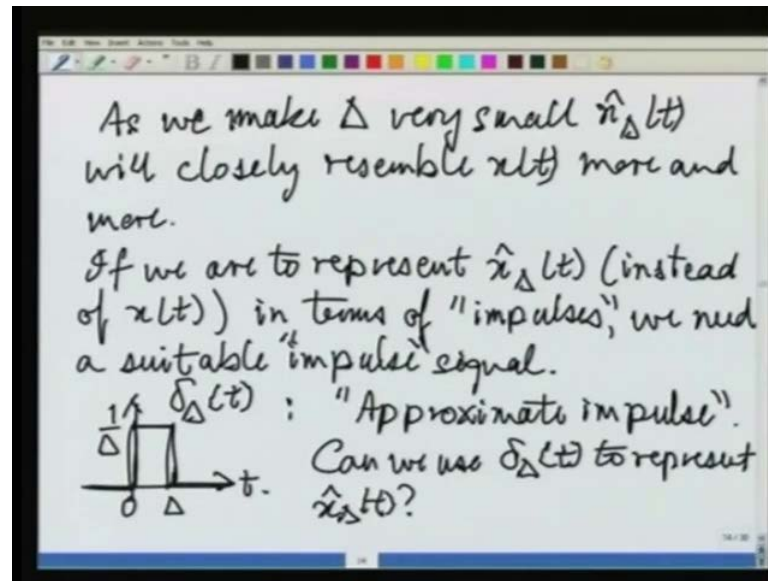 B I
As we make Δ very small x̂_Δ(t)
will closely resemble x(t) more and
more.
If we are to represent x̂_Δ(t) (instead
of x(t)) in terms of "impulses", we need
a suitable "impulse" signal.
δ_Δ(t) : "Approximate impulse".
1/Δ
Can we use δ_Δ(t) to represent
t.
0 Δ
x̂_Δ(t)?